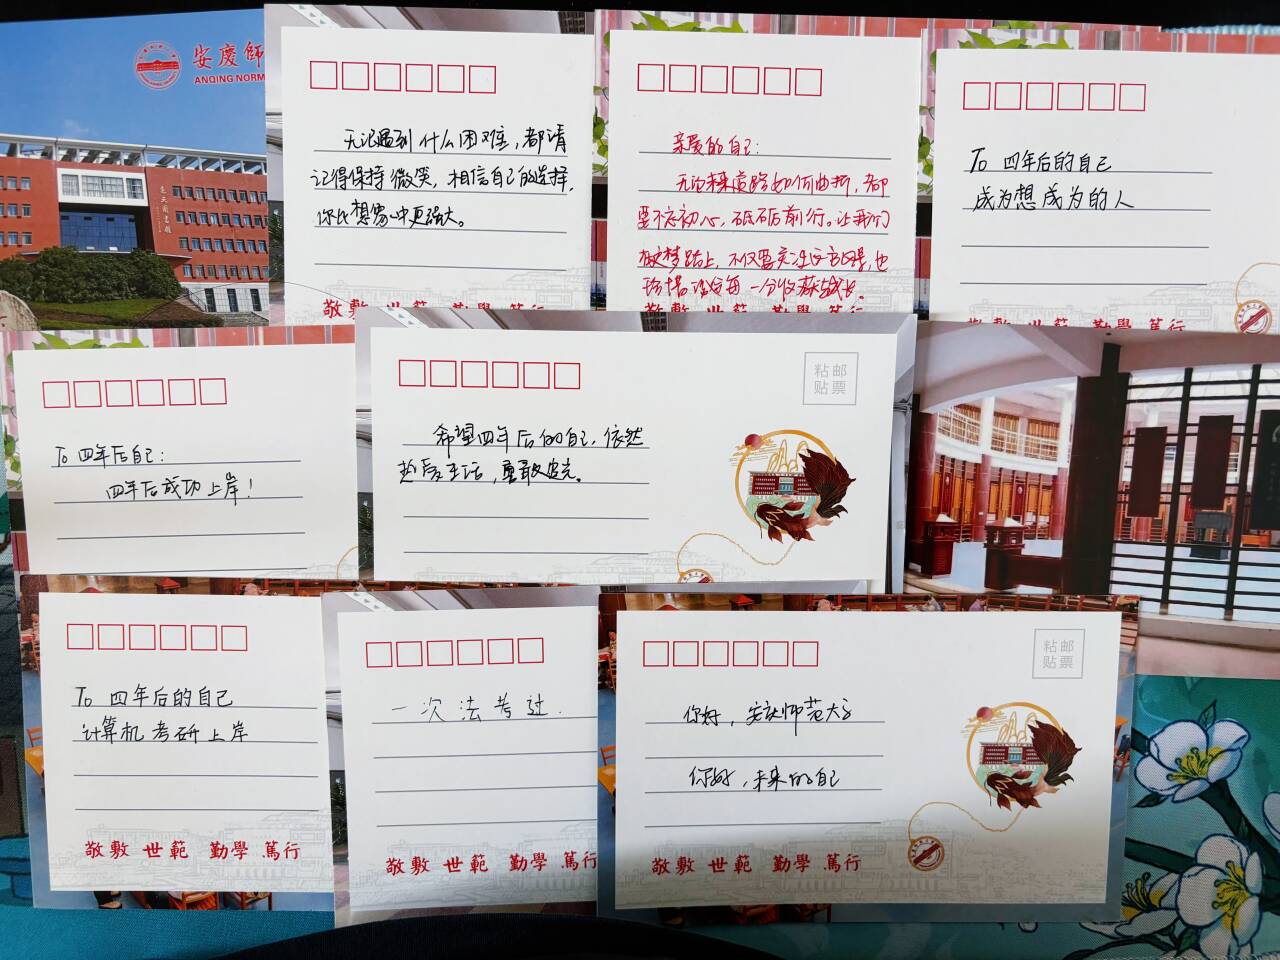 安慶師
ANQING NORM
无论遇到什么困难，都请
记得保持微笑，相信自己的选择，
你比想象中更强大。
敬敷 世範 勤學 篤行
亲爱的自己：
无论未来道路如何曲折，都
要不忘初心，砥砺前行。让我们
在追梦路上，不仅要关注远方的风景，也
珍惜沿途每一分收获与成长。
敬敷 世範 勤學 篤行
To 四年后的自己
成为想成为的人
敬敷 世範 勤學 篤行
To 四年后自己：
四年后成功上岸！
粘邮
贴票
希望四年后的自己，依然
热爱生活，勇敢坚定。
To 四年后的自己
计算机考研上岸
敬敷 世範 勤學 篤行
一次法考过.
敬敷 世範 勤學 篤行
粘邮
贴票
你好，安庆师范大学
你好，未来的自己
敬敷 世範 勤學 篤行